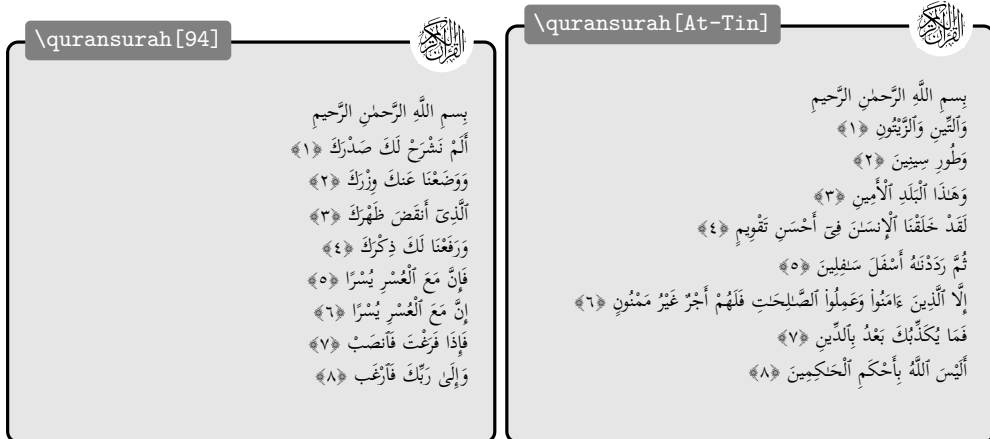 \quransurah[94]
بِسمِ اللَّهِ الرَّحمٰنِ الرَّحيمِ
أَلَمْ نَشْرَحْ لَكَ صَدْرَكَ ﴿١﴾
وَوَضَعْنَا عَنكَ وِزْرَكَ ﴿٢﴾
ٱلَّذِىٓ أَنقَضَ ظَهْرَكَ ﴿٣﴾
وَرَفَعْنَا لَكَ ذِكْرَكَ ﴿٤﴾
فَإِنَّ مَعَ ٱلْعُسْرِ يُسْرًا ﴿٥﴾
إِنَّ مَعَ ٱلْعُسْرِ يُسْرًا ﴿٦﴾
فَإِذَا فَرَغْتَ فَٱنصَبْ ﴿٧﴾
وَإِلَىٰ رَبِّكَ فَٱرْغَب ﴿٨﴾
\quransurah[At-Tin]
بِسمِ اللَّهِ الرَّحمٰنِ الرَّحيمِ
وَٱلتِّينِ وَٱلزَّيْتُونِ ﴿١﴾
وَطُورِ سِينِينَ ﴿٢﴾
وَهَـٰذَا ٱلْبَلَدِ ٱلْأَمِينِ ﴿٣﴾
لَقَدْ خَلَقْنَا ٱلْإِنسَـٰنَ فِىٓ أَحْسَنِ تَقْوِيمٍ ﴿٤﴾
ثُمَّ رَدَدْنَـٰهُ أَسْفَلَ سَـٰفِلِينَ ﴿٥﴾
إِلَّا ٱلَّذِينَ ءَامَنُوا۟ وَعَمِلُوا۟ ٱلصَّـٰلِحَـٰتِ فَلَهُمْ أَجْرٌ غَيْرُ مَمْنُونٍ ﴿٦﴾
فَمَا يُكَذِّبُكَ بَعْدُ بِٱلدِّينِ ﴿٧﴾
أَلَيْسَ ٱللَّهُ بِأَحْكَمِ ٱلْحَـٰكِمِينَ ﴿٨﴾